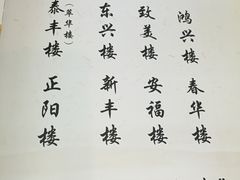 鸿兴楼
春华楼
致美楼
安福楼
东兴楼
新丰楼
泰丰楼
(萃华楼)
正阳楼